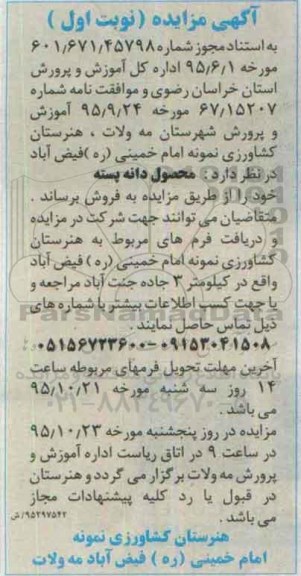 آگهی مزایده (نوبت اول)
به استناد مجوز شماره ۶۰۱/۶۷۱/۴۵۷۹۸
مورخه ۹۵/۶/۱ اداره کل آموزش و پرورش
استان خراسان رضوی و موافقت نامه شماره
۶۷/۱۵۲۰۷ مورخه ۹۵/۹/۲۴ آموزش
و پرورش شهرستان مه ولات ، هنرستان
کشاورزی نمونه امام خمینی (ره)فیض آباد
در نظر دارد : محصول دانه پسته
خود را از طریق مزایده به فروش برساند .
متقاضیان می توانند جهت شرکت در مزایده
و دریافت فرم های مربوط به هنرستان
کشاورزی نمونه امام خمینی (ره) فیض آباد
واقع در کیلومتر ۳ جاده جنت آباد مراجعه و
یا جهت کسب اطلاعات بیشتر با شماره های
ذیل تماس حاصل نمایند .
۰۵۱۵۶۷۲۳۶۰۰-۰۹۱۵۳۰۴۱۵۰۸
آخرین مهلت تحویل فرمهای مربوطه ساعت
۱۴ روز سه شنبه مورخه ۹۵/۱۰/۲۱
می باشد .
مزایده در روز پنجشنبه مورخه ۹۵/۱۰/۲۳
در ساعت ۹ در اتاق ریاست اداره آموزش و
پرورش مه ولات برگزار می گردد و هنرستان
در قبول یا رد کلیه پیشنهادات مجاز
می باشد .
۹۵۲۹۷۵۴۲/ش
هنرستان کشاورزی نمونه
امام خمینی (ره) فیض آباد مه ولات
ParsNamadData